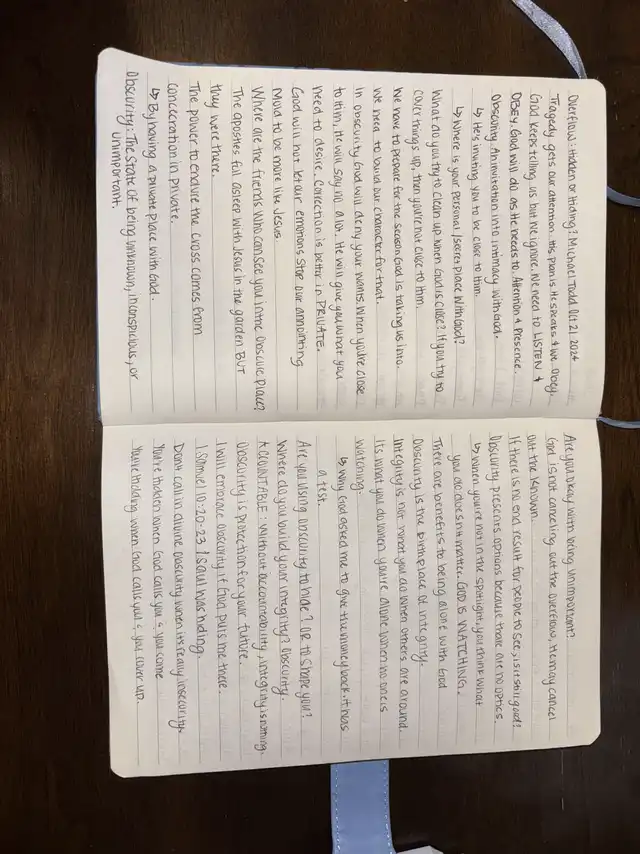 Overflow: Hidden or Hiding? Michael Todd Oct. 21, 2024
Tragedy gets our attention. His plan is He speaks & we obey.
God keeps telling us but we ignore. We need to LISTEN &
OBEY. God will do as He needs to. Attention & Presence.
Obscurity: An invitation into intimacy with God.
↳ He's inviting you to be close to Him.
↳ Where is your personal/secret place with God?
What do you try to clean up when God is close? If you try to
cover things up, then you're not close to Him.
We have to prepare for the season God is taking us into.
We need to build our character for that.
In obscurity God will deny your wants. When you're close
to Him, He will say no a lot. He will give you what you
need to desire. Correction is better in PRIVATE.
God will not let our emotions stop our annointing
Mold to be more like Jesus
Where are the friends who can see you in the obscure place?
The apostles fell asleep with Jesus in the garden BUT
they were there.
The power to endure the cross comes from
concecration in private.
↳ By having a private place with God.
Obscurity: The state of being unknown, inconspicious, or
unimportant.
Are you okay with being unimportant?
God is not canceling out the overflow, He may cancel
out the known.
If there is no end result for people to see, is it still good?
Obscurity presents options because there are no optics.
↳ When you're not in the spotlight, you think what
you do doesn't matter. GOD IS WATCHING.
There are benefits to being alone with God
Obscurity is the birthplace of integrity.
Integrity is not what you do when others are around.
It's what you do when you're alone when no one is
watching.
↳ Why God asked me to give the money back. It was
a test.
Are you using obscurity to hide? Or to shape you?
Where do you build your integrity? Obscurity.
ACCOUNTABLE: Without accountability, integrity is nothing.
Obscurity is protection for your future.
I will embrace obscurity if God puts me there.
1 Samuel 10:20-23 | Saul was hiding.
Don't call in divine obscurity when it's really insecurity.
You're hidden when God calls you & you come
You're hiding when God calls you & you cover up.